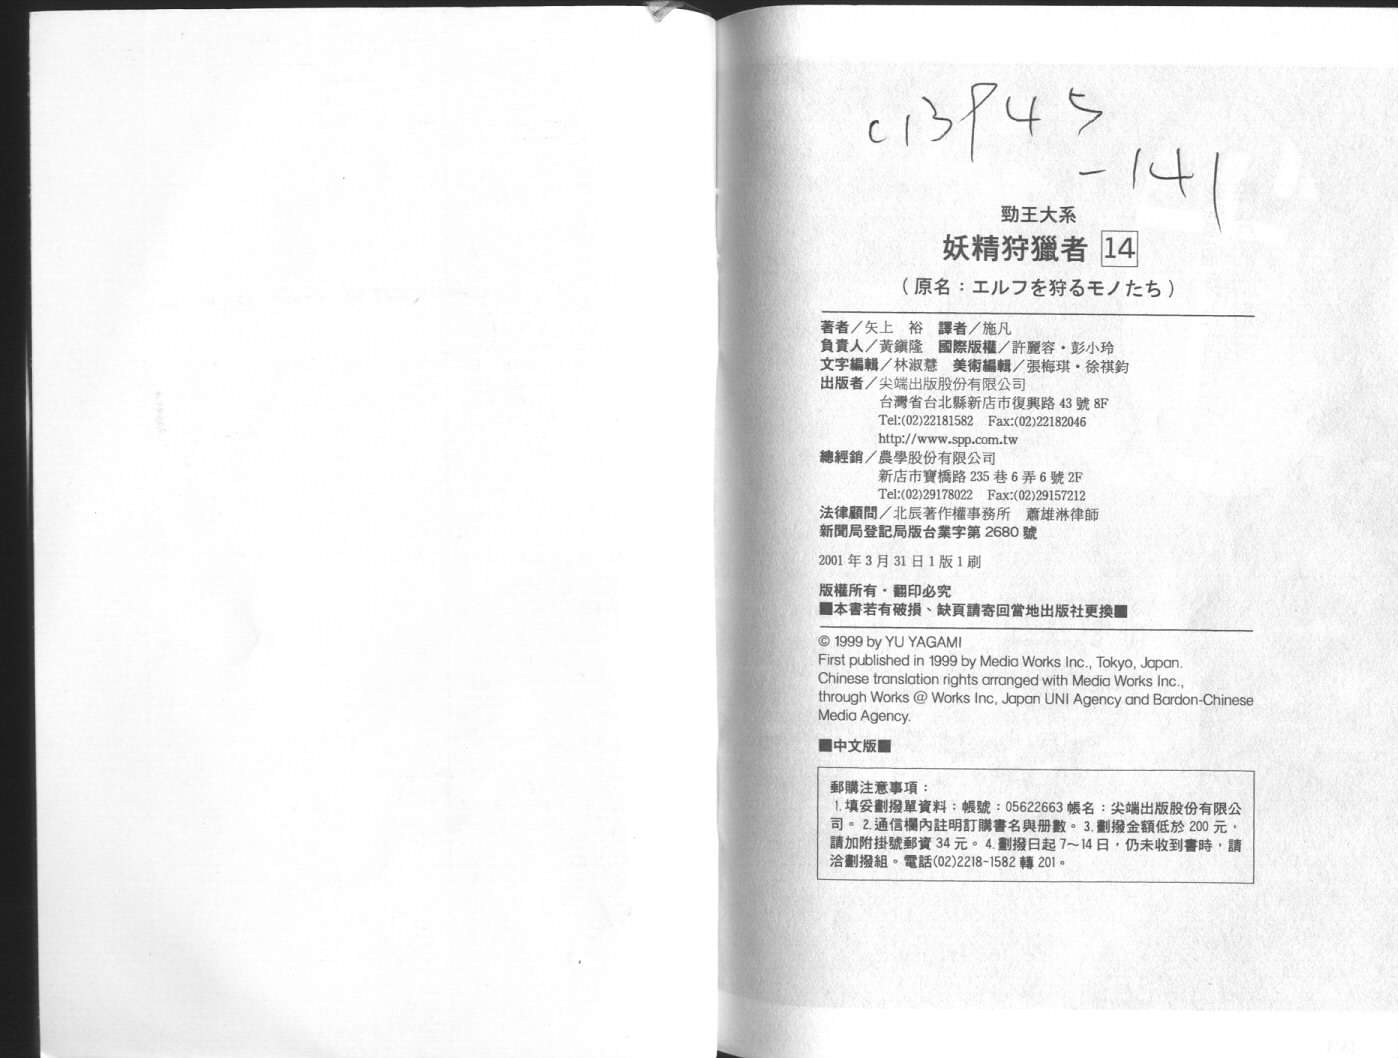 C13945
-141
勁王大系
妖精狩獵者 14
（原名：エルフを狩るモノたち）
著者／矢上　裕　譯者／施凡
負責人／黃鎭隆　國際版權／許麗容・彭小玲
文字編輯／林淑慧　美術編輯／張梅琪・徐祺鈞
出版者／尖端出版股份有限公司
台灣省台北縣新店市復興路 43 號 8F
Tel:(02)22181582　Fax:(02)22182046
http://www.spp.com.tw
總經銷／農學股份有限公司
新店市寶橋路 235 巷 6 弄 6 號 2F
Tel:(02)29178022　Fax:(02)29157212
法律顧問／北辰著作權事務所　蕭雄淋律師
新聞局登記局版台業字第 2680 號
2001 年 3 月 31 日 1 版 1 刷
版權所有・翻印必究
■本書若有破損、缺頁請寄回當地出版社更換■
© 1999 by YU YAGAMI
First published in 1999 by Media Works Inc., Tokyo, Japan.
Chinese translation rights arranged with Media Works Inc.,
through Works @ Works Inc, Japan UNI Agency and Bardon-Chinese
Media Agency.
■中文版■
郵購注意事項：
1.填妥劃撥單資料：帳號：05622663 帳名：尖端出版股份有限公
司。2.通信欄內註明訂購書名與册數。3.劃撥金額低於 200 元，
請加附掛號郵資 34 元。4.劃撥日起 7～14 日，仍未收到書時，請
洽劃撥組。電話(02)2218-1582 轉 201。